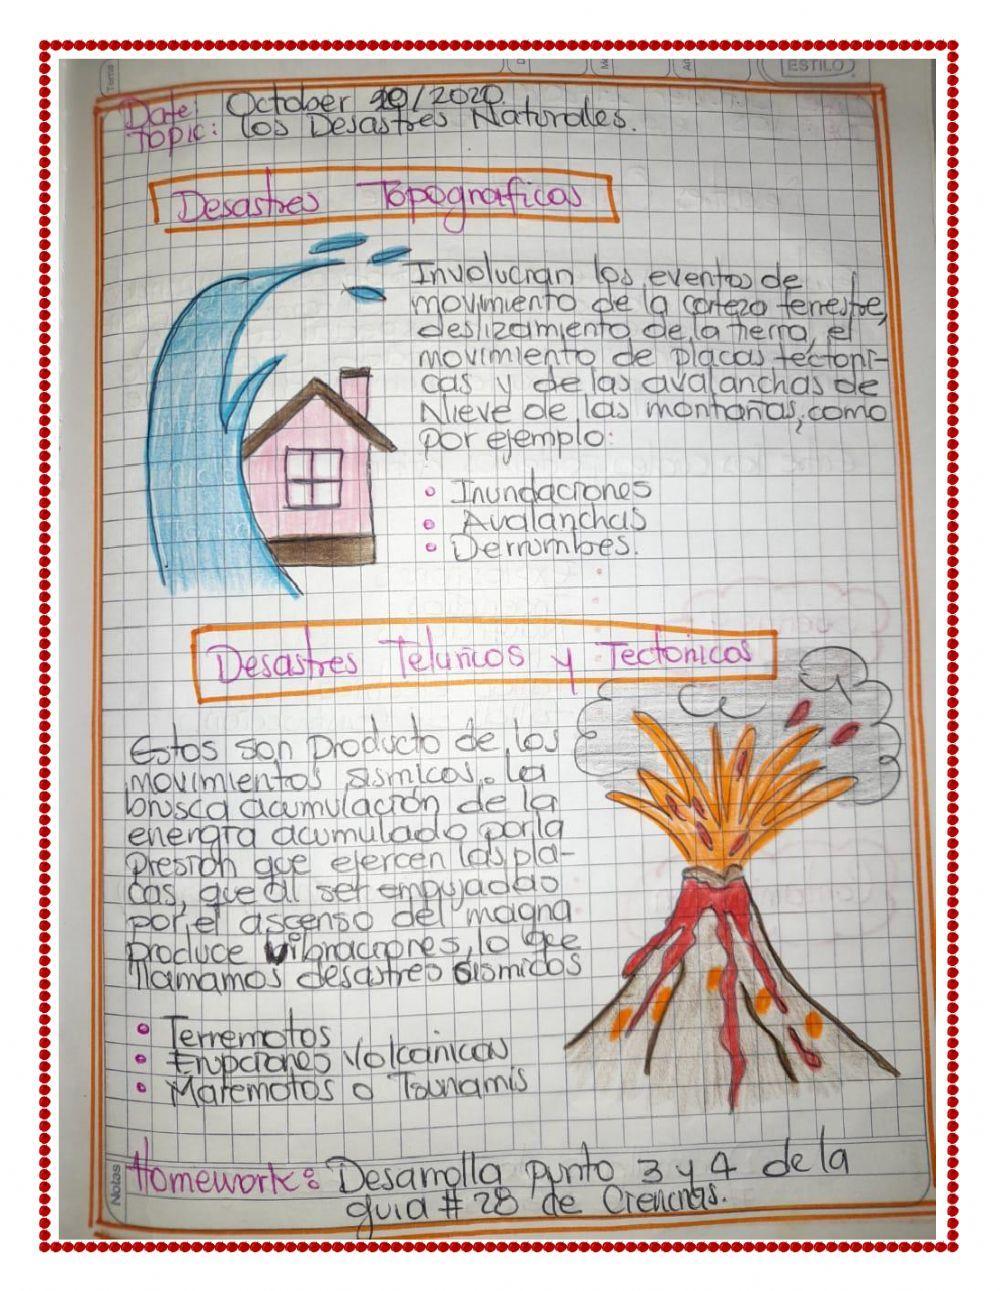 ESTILO
Date: October 20/2020
Topic: los Desastres Naturales.
Desastres Topograficos
Involucran los eventos de
movimiento de la corteza terrestre,
deslizamiento de la tierra, el
movimiento de placas tectoni-
cas y de las avalanchas de
Nieve de las montañas, como
por ejemplo:
• Inundaciones
• Avalanchas
• Derrumbes.
Desastres Teluricos y Tectónicos
Estos son producto de los
movimientos sismicos. La
brusca acumulación de la
energía acumulado por la
presión que ejercen las pla-
cas, que al ser empujadas
por el ascenso del magna
produce vibraciones, lo que
llamamos desastres sismicos
• Terremotos
• Erupciones Volcánicas
• Maremotos o Tsunamis
Notas
Homework: Desarrolla punto 3 y 4 de la
guia # 28 de Ciencias.